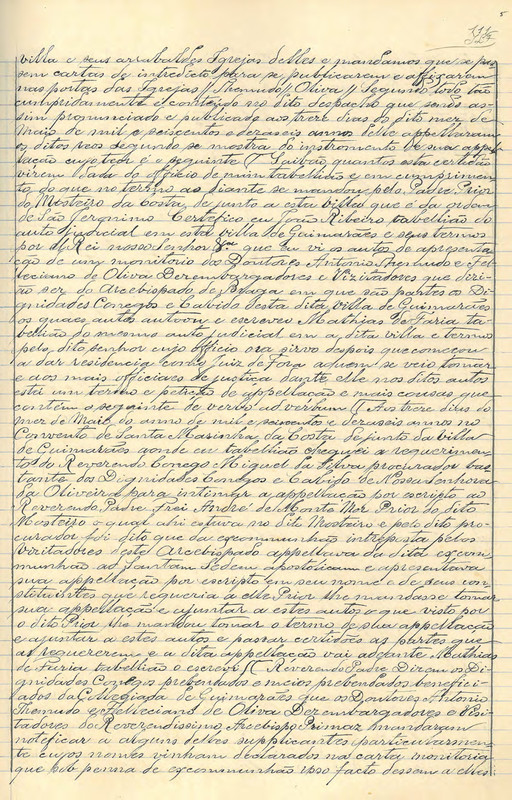 villa e seus arrabaldes Igrejas delles e mandamos que se pas
sem cartas de intredicto para se publicarem e affixarem
nas portas das Igrejas // Themudo // Oliva // Segundo todo tão
cumpridamente é contendo no dito despacho que sendo as-
sim pronunciado e publicado aos treze dias do dito mez de
Maio de mil e seiscentos e dezaseis annos delle appellaram
os ditos reos segundo se mostra do instromento de sua appel
lação cujo teor é o seguinte // Saibão quantos esta certidão
virem dada do officio de mim tabellião e em cumprimen
to do que no termo ao diante se mandou pelo Padre Prior
do Mosteiro da Costa, de junto a esta villa que é da ordem
de São Jeronimo. Certefico eu João Ribeiro tabellião do
auto judicial em esta villa de Guimarães e seus termos
por El Rei nosso Senhor que eu vi os autos de apresenta
ção de um monitorio dos Doutores Antonio Themudo e Fel-
leciano de Oliva Dezembargadores e Vizitadores que diri-
ão ser do Arcebispado de Braga em que são partes os Di-
gnidades Conegos e Cabido desta dita villa de Guimarães
os quaes autos autuou e escreveu Mathias de Faria ta
bellião do mesmo auto judicial em a dita villa e termo
pelo dito senhor cujo officio ora sirvo despois que começou
a dar residencia como Juiz de Fora aquem se veio tomar
e aos mais officiaes de justiça dante elle nos ditos autos
está um termo e petição de appellação e mais cousas que
contém o seguinte de verbo ad verbum // Aos treze dias do
mez de Maio do anno de mil e seiscentos e dezaseis annos no
Convento de Santa Marinha da Costa de junto da villa
de Guimarães aonde eu tabellião cheguei a requerimen
to do Reverendo Conego Miguel da Silva procurador bas
tante dos Dignidades Conegos e Cabido de Nossa Senhora
da Oliveira para intimar a appellação por escripto ao
Reverendo Padre frei André de Monte Mor Prior do dito
Mosteiro o qual ahi estava no dito Mosteiro e pelo dito pro-
curador foi dito que da excommunhão intreposta pelos
Vizitadores deste Arcebispado appellava da dita excom-
munhão ad Santam Sedem apostolicam e apresentava
sua appellação por escripto em seu nome e de seus con
stituintes que requeria a elle Prior lhe mandasse tomar
sua appellação e ajuntar a estes autos o que visto por
o dito Prior lhe mandou tomar o termo de sua appellação
e ajuntar a estes autos e passar certidões as partes que
as requererem e a dita appellação vai adiante Mathias
de Faria tabellião o escrevi // Reverendo Padre Dizem os Di-
gnidades Conegos prebendados e meios prebendados benefici-
ados da Collegiada de Guimarães que os Doutores Antonio
Themudo e Felleciano de Oliva Dezembargadores e Visi-
tadores do Reverendissimo Arcebispo Primaz mandaram
noteficar a alguns delles supplicantes particularmen-
te cujos nomes vinham declarados na carta monitoria
que sob penna de excommunhão ipso facto dessem a elles